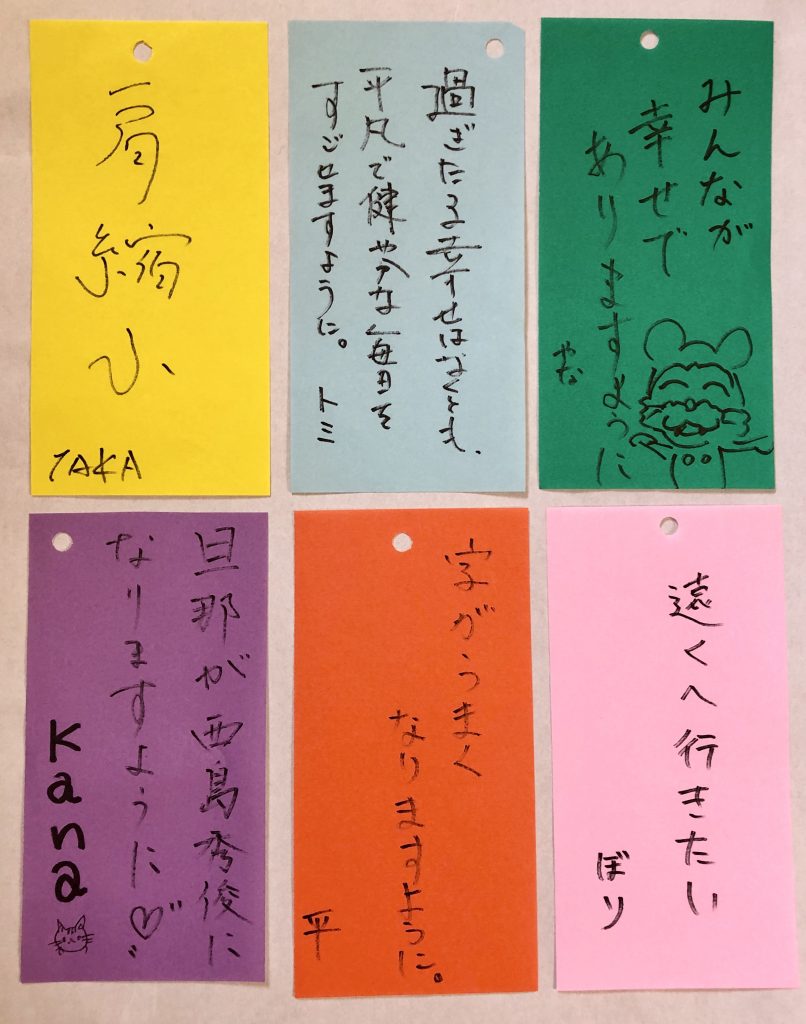 肩
縮
小
TAKA
過ぎたる幸せはなくとも、
平凡で健やかな毎日を
すごせますように。
トミ
みんなが
幸せで
ありますように
やな
旦那が西島秀俊に
なりますように♡
Kana
字がうまく
なりますように。
平
遠くへ行きたい
ぼり